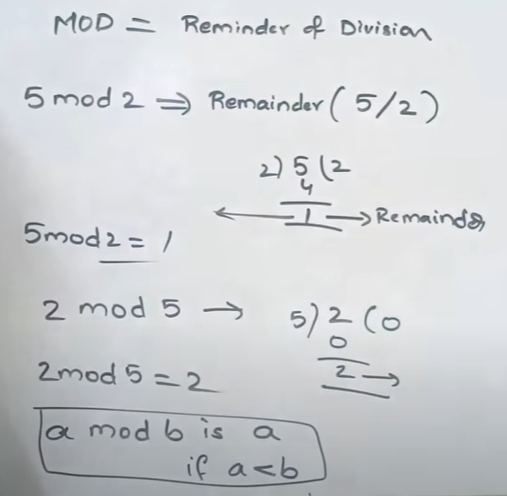 MOD = Reminder of Division
5 mod 2 ⇒ Remainder ( 5/2 )
2) 5 (2
4
1 → Remainder
5mod2 = 1
2 mod 5 → 5) 2 (0
0
2mod 5 = 2
2 →
a mod b is a
if a<b